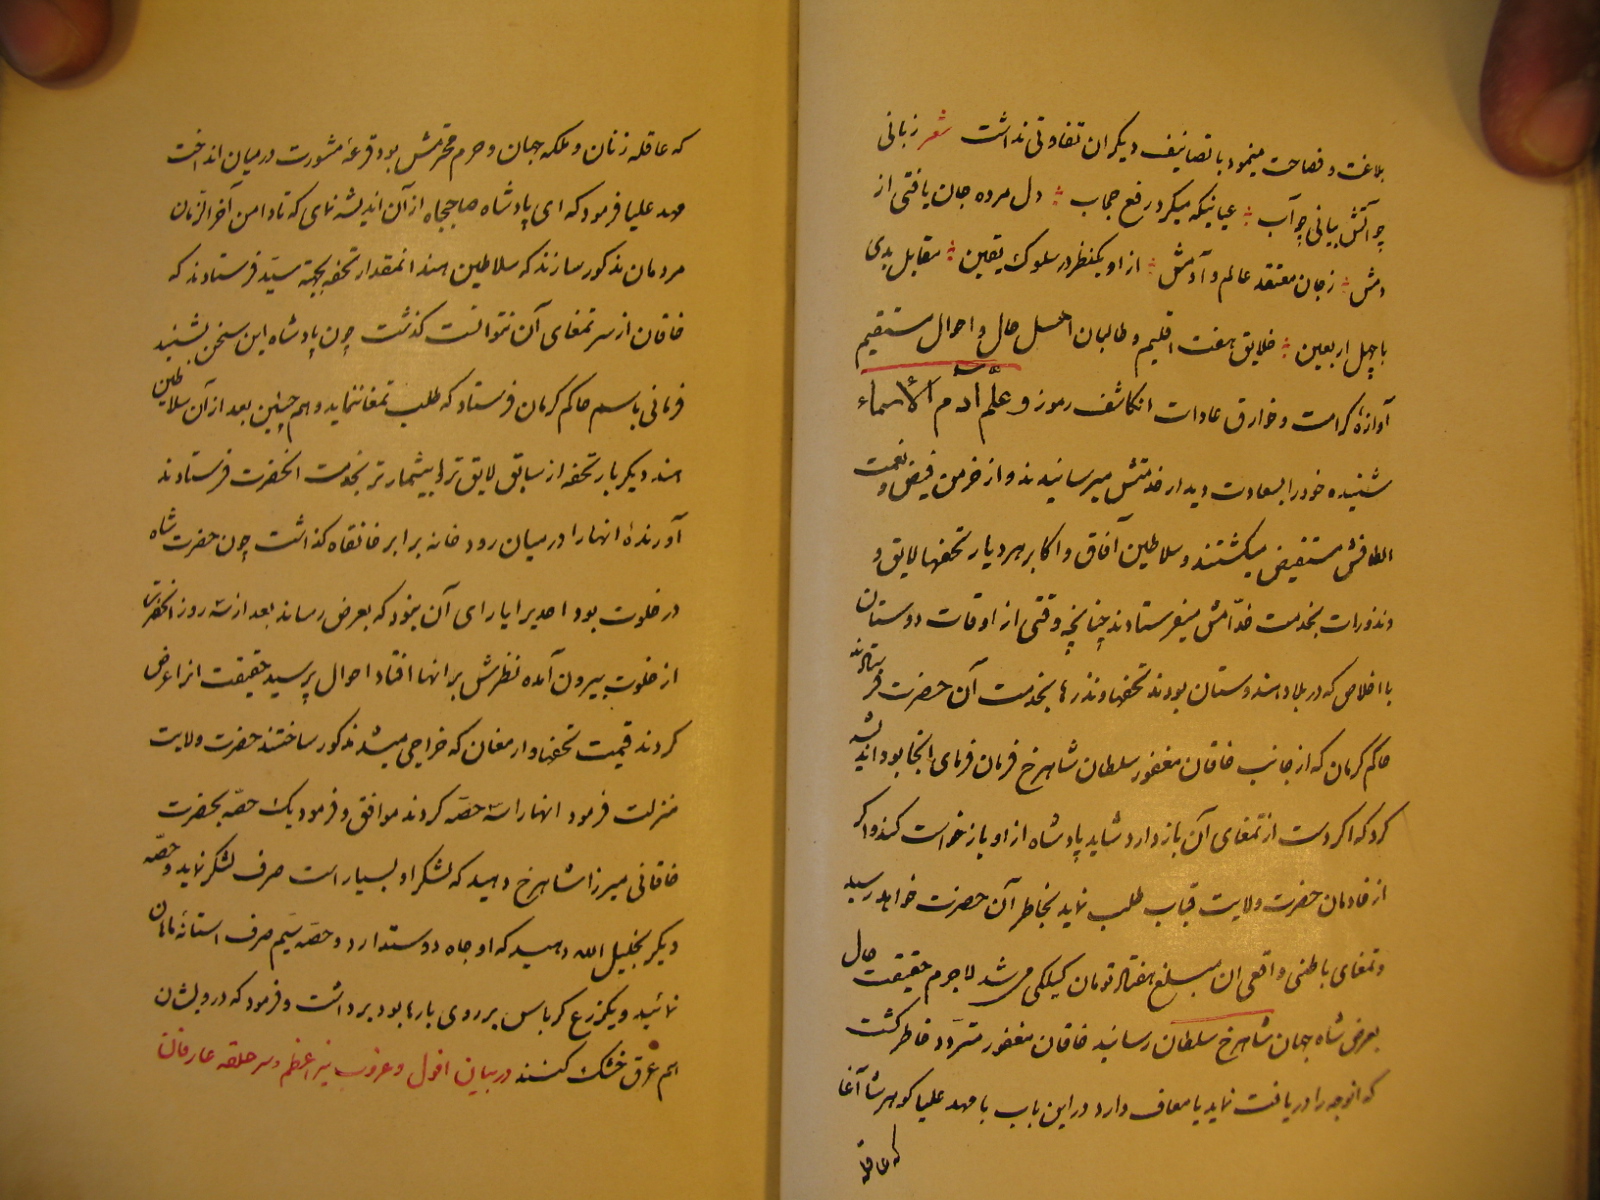 بلاغت و فصاحت مینمود با تصانیف دیگران تفاوتی نداشت شعر زبانی
چو آتش بیانی چو آب عیانیکه میکرد رفع حجاب دل مرده جان یافتی از
دمش زجان معتقد عالم و آدمش از او یکنظر در سلوک یقین مقابل بدی
با چهل اربعین خلایق هفت اقلیم و طالبان اهل حال و احوال مستقیم
آوازهٔ کرامت و خوارق عادات انکاشف رموز و علّم آدم الاسماء
شنیده خود را بسعادت دیدار خدمتش میرسانیدند و از خرمن فیض و نعمت
الطافش مستفیض میکشتند و سلاطین آفاق و اکابر هر دیار تحفهای لایق و
و نذورات بخدمت خدّامش میفرستادند چنانچه وقتی از اوقات دوستان
با اخلاص که در بلاد هندوستان بودند تحفها و نذرها بخدمت آن حضرت فرستادند
حاکم کرمان که از جانب خاقان مغفور سلطان شاهرخ فرمان فرمای انجا بود اندیشه
کرد که اکر دست از تمغای آن باز دارد شاید پادشاه از او باز خواست کند و اکر
از خادمان حضرت ولایت قباب طلب نماید بخاطر آن حضرت خواهد رسید
و تمغای باطنی واقعی ان مبلغ هفتاد تومان کپکی می شد لاجرم حقیقت حال
بعرض شاه جهان شاهرخ سلطان رسانید خاقان مغفور متردّد خاطر کشت
که انوجه را دریافت نماید یا معاف دارد در این باب با مهد علیا کوهر شاد آغا
که عاقله
که عاقله زنان و ملکه جهان و حرم محترمش بود قرعهٔ مشورت در میان انداخت
مهد علیا فرمود که ای پادشاه صاحبجاه از آن اندیشه نمای که تا دامن آخر الزمان
مردمان مذکور سازند که سلاطین هند انمقدار تحفه بجهة سیّد فرستادند که
خاقان از سر تمغای آن نتوانست کذشت چون پادشاه این سخن بشنید
فرمانی باسم حاکم کرمان فرستاد که طلب تمغا ننماید و هم چنین بعد از آن سلاطین
هند دیکر بار تحفه از سابق لایق تر و بیشمار تر بخدمت انحضرت فرستادند
آورندهٔ انها را در میان رودخانه برابر خانقاه کذاشت چون حضرت شاه
در خلوت بود احدیرا یارای آن نبود که بعرض رساند بعد از سه روز انحضرت
از خلوت بیرون آمده نظرش بر انها افتاد احوال پرسید حقیقت انرا عرض
کردند قیمت تحفها و ارمغان که خراجی میشد مذکور ساختند حضرت ولایت
منزلت فرمود انها را سه حصّه کردند موافق و فرمود یک حصّه بحضرت
خاقانی میرزا شاهرخ دهید که لشکر او بسیار است صرف لشکر نماید و حصّه
دیکر بخلیل الله دهید که او جاه دوستدارد و حصّه سیّم صرف استانهٔ ماهان
نمائید و یکزرع کرباس بر روی بارها بود برداشت و فرمود که درویشان
هم عرق خشک کنند در بیان افول و غروب نیر اعظم و سر حلقه عارفان